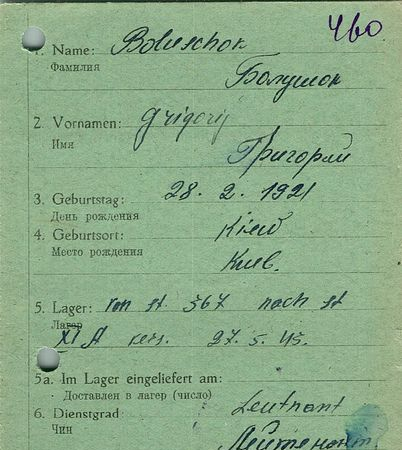 460
1. Name: Boluschok
Фамилия
Болушок
2. Vornamen: Grigorij
Имя
Григорий
3. Geburtstag: 28. 2. 1921
День рождения
4. Geburtsort: Kiew
Место рождения
Киев.
5. Lager: von st 367 nach st
Лагер
XI A vers. 27. 5. 43.
5a. Im Lager eingeliefert am:
Доставлен в лагер (число)
6. Dienstgrad: Leutnant
Чин Лейтенант